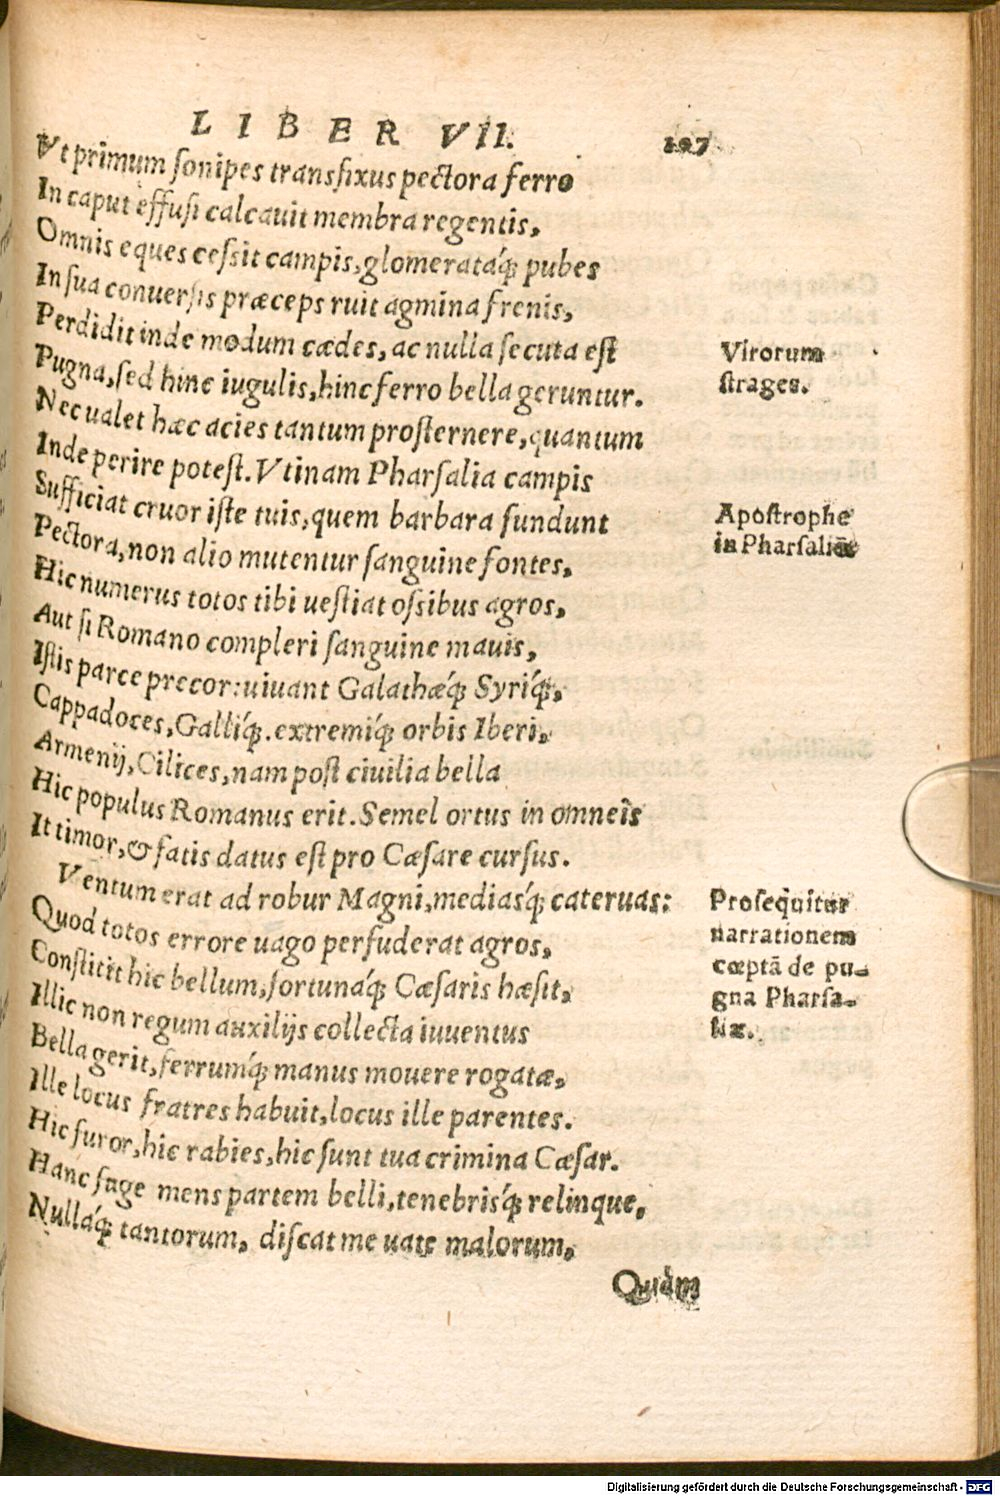 LIBER VII. 197
Vt primum ſonipes transfixus pectora ferro
In caput effuſi calcauit membra regentis,
Omnis eques ceſsit campis, glomeratáq́; pubes
In ſua conuerſis præceps ruit agmina frenis,
Perdidit inde modum cædes, ac nulla ſecuta eſt
Virorum
Pugna, ſed hinc iugulis, hinc ferro bella geruntur.
ſtrages.
Nec ualet hæc acies tantum proſternere, quantum
Inde perire poteſt. Vtinam Pharſalia campis
Sufficiat cruor iſte tuis, quem barbara fundunt
Apoſtrophe
Pectora, non alio mutentur ſanguine fontes,
in Pharſaliā
Hic numerus totos tibi ueſtiat oſsibus agros,
Aut ſi Romano compleri ſanguine mauis,
Iſtis parce precor: uiuant Galathæq́; Syriq́;,
Cappadoces, Galliq́;. extremiq́; orbis Iberi,
Armenij, Cilices, nam poſt ciuilia bella
Hic populus Romanus erit. Semel ortus in omneîs
It timor, & fatis datus eſt pro Cæſare curſus.
Ventum erat ad robur Magni, mediasq́; cateruas:
Proſequitur
Quod totos errore uago perfuderat agros,
narrationem
Conſtitit hic bellum, fortunáq́; Cæſaris hæſit,
cœptā de pu-
Illic non regum auxilijs collecta iuuentus
gna Pharſa-
liæ.
Bella gerit, ferrumq́; manus mouere rogatæ,
Ille locus fratres habuit, locus ille parentes.
Hic furor, hic rabies, hic ſunt tua crimina Cæſar.
Hanc fuge mens partem belli, tenebrisq́; relinque,
Nulláq́; tantorum, diſcat me uate malorum,
Quàm
Digitalisierung gefördert durch die Deutsche Forschungsgemeinschaft - DFG